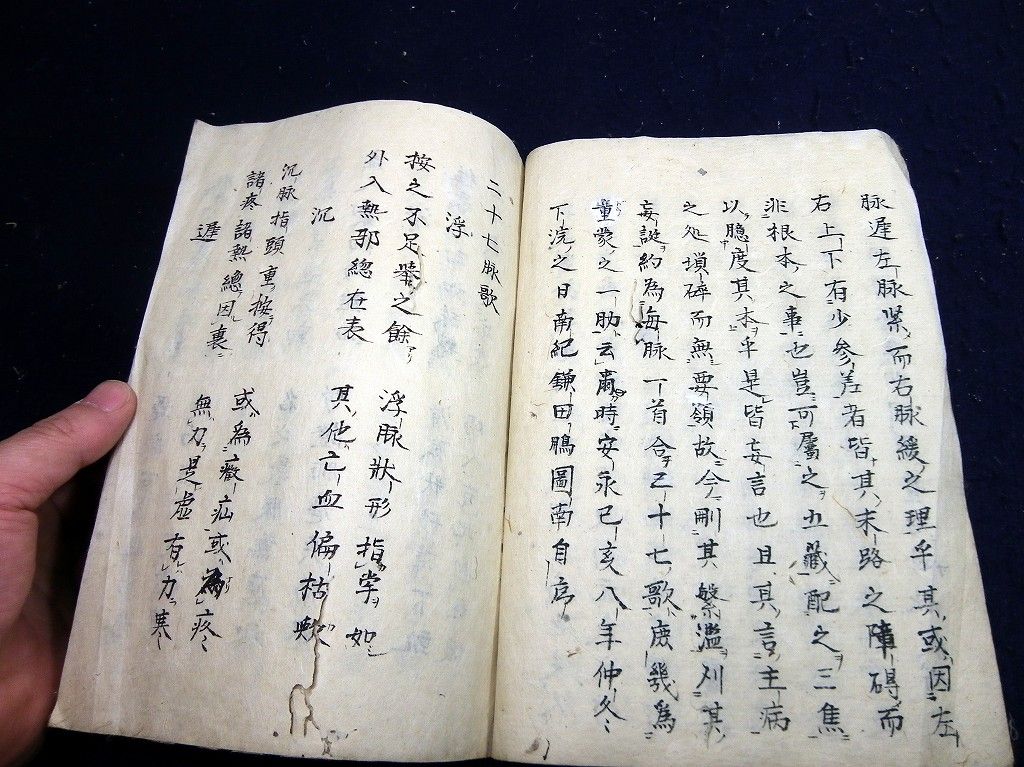 脉遅左脉緊而右脉緩之理乎其或因左
右上下有少参差者皆其末路之障碍而
非根本之事也豈可属之五藏配之三焦
以臆度其本乎是皆妄言也且其言主病
之処瑣碎而無要領故今刪其繁濫刈其
妄誕約為毎脉一首合二十七歌庶幾為
童蒙之一助云爾時安永己亥八年仲冬
下浣之日南紀鎌田鵬圖南自序
二十七脉歌
浮
按之不足挙之餘 浮脉状形指掌如
外入熱邪總在表 其他亡血偏枯歟
沉
沉脉指頭重按得 或為癥疝或為疼
諸疼諸熱總因裏 無力是虚有力寒
遅